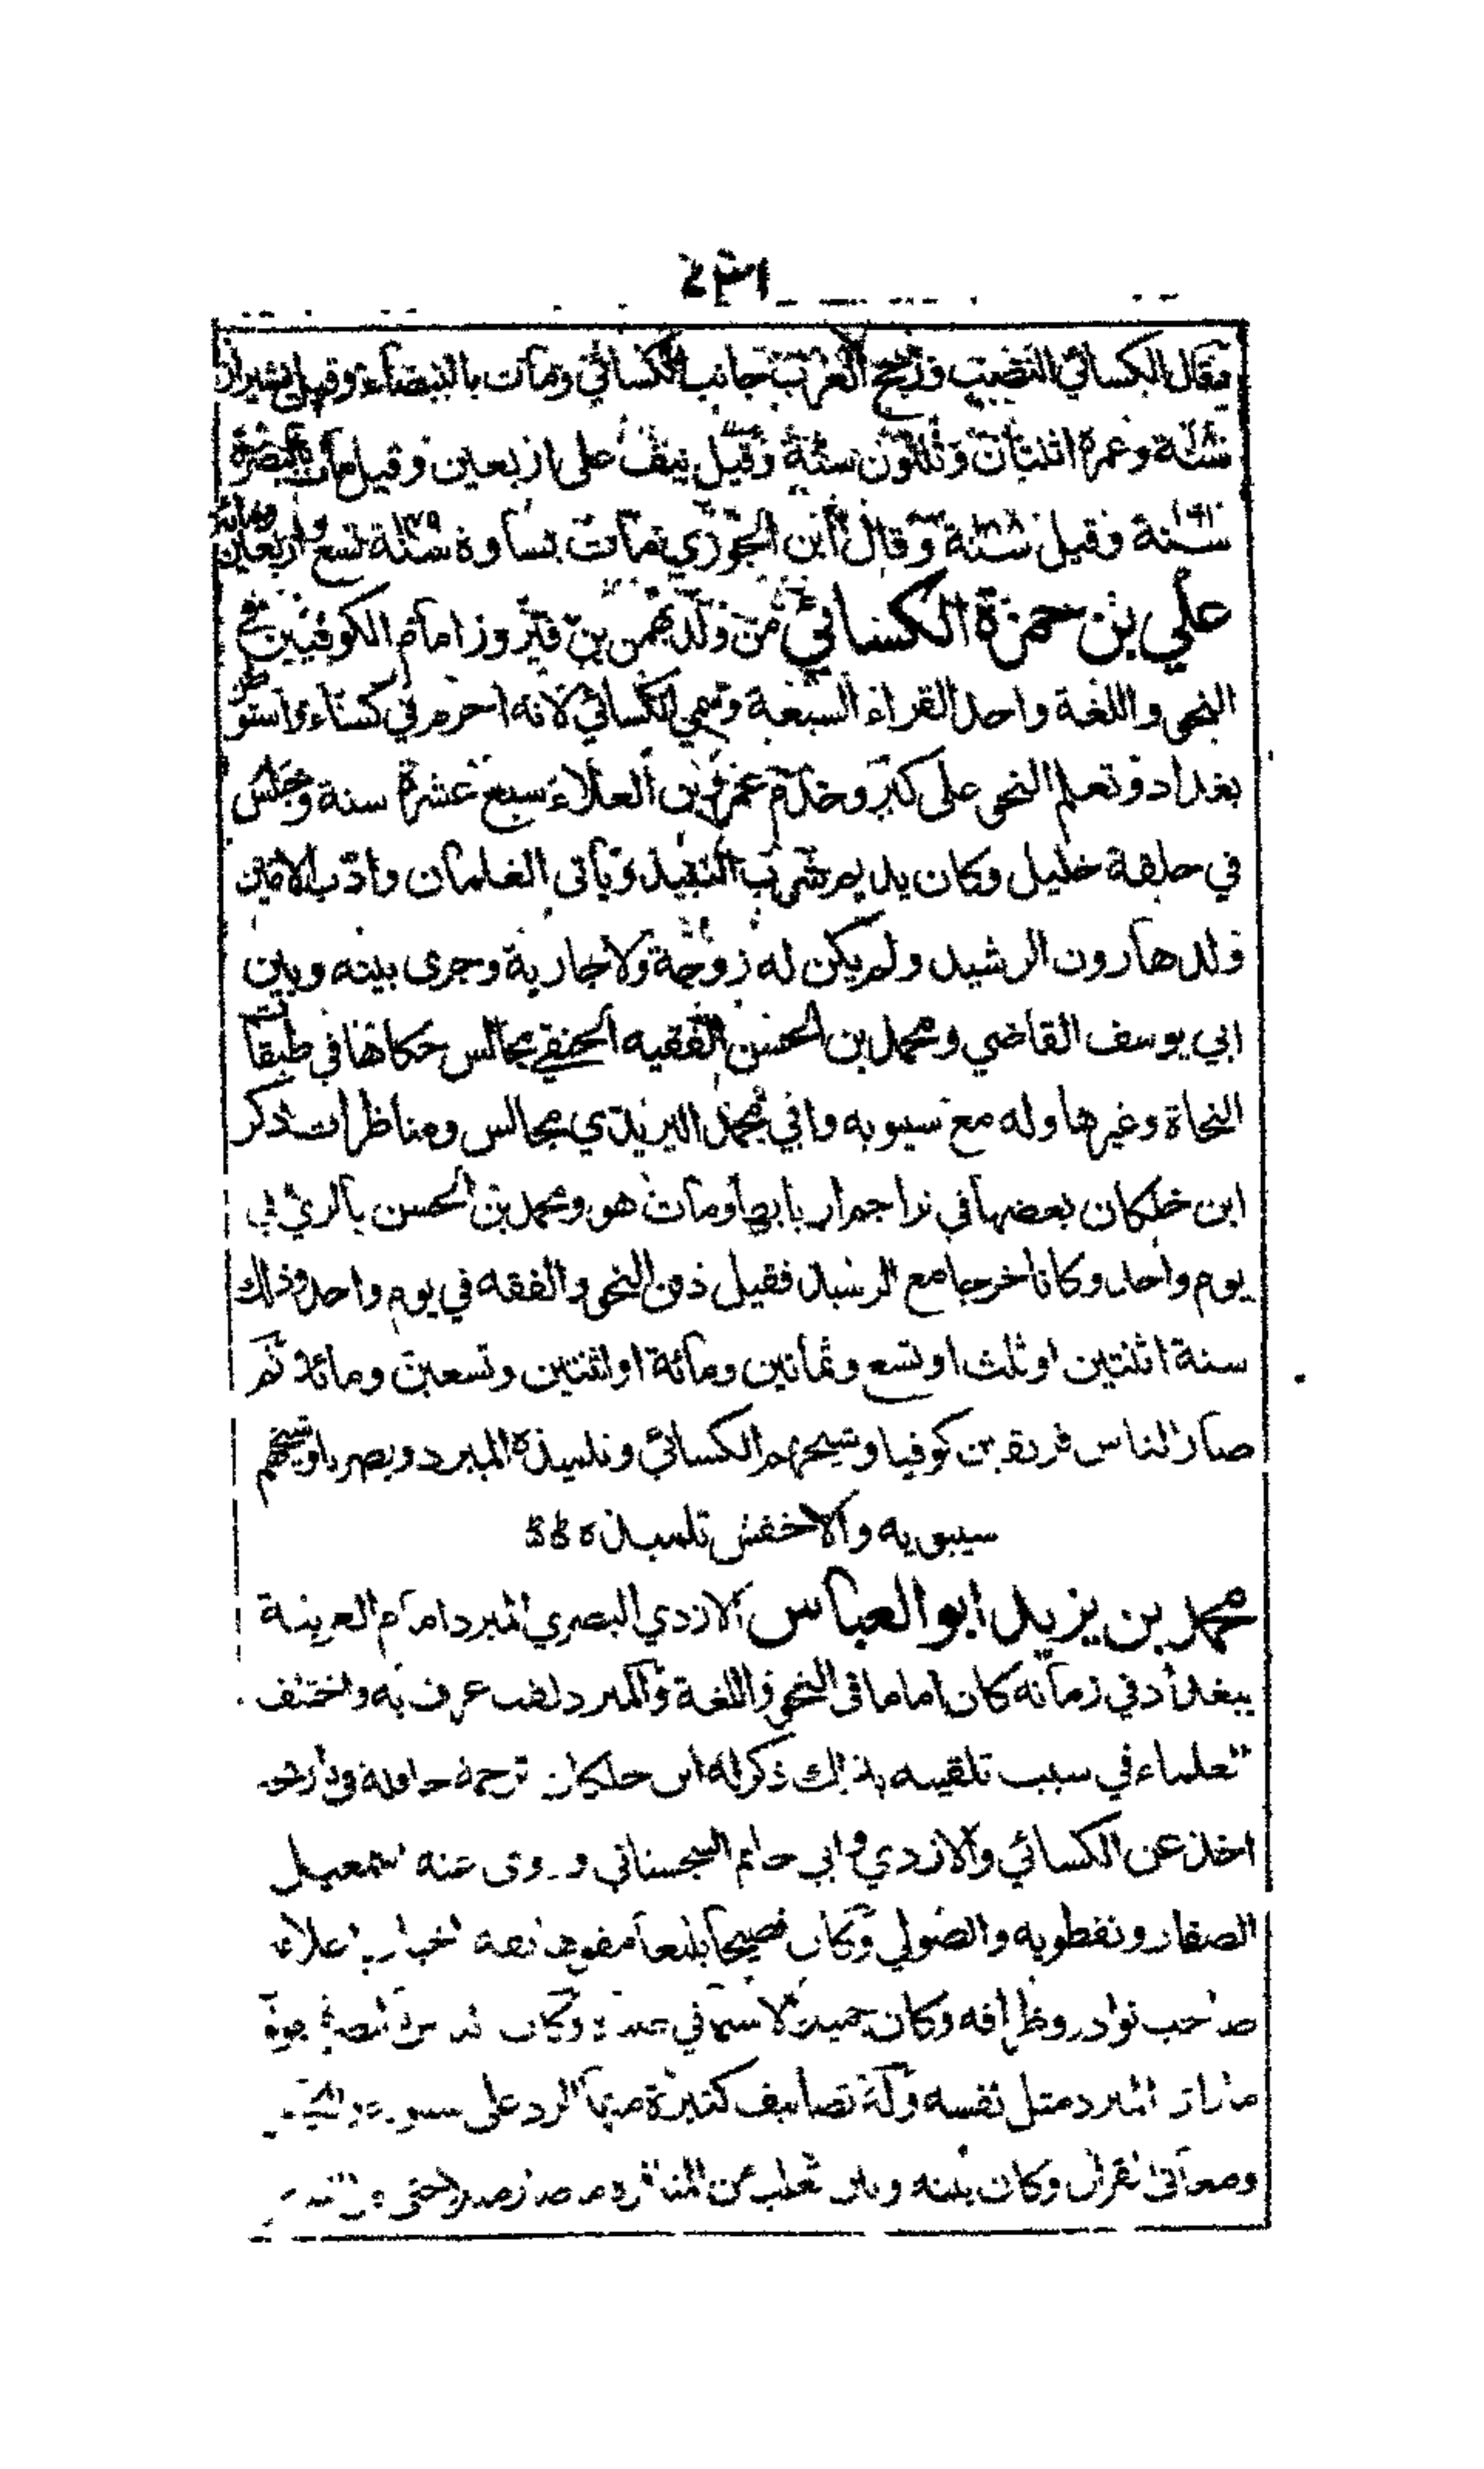 فقال الكسائي النصب ورجح العرب جانب الكسائي ومات بالبيضاء وقيل بشيراز
سنة وعمره اثنتان وثلثون سنة وقيل نيف على اربعين وقيل مات بالبصرة
سنة وقيل سنة وقال ابن الجوزي مات بساوة سنة تسع واربعين ومائة
علي بن حمزة الكسائي من ولد بهمن بن فيروز امام الكوفيين في
النحو واللغة واحد القراء السبعة وسمي الكسائي لانه احرم في كساء واستوطن
بغداد وتعلم النحو على كبر وخدم عمرو بن العلاء سبع عشرة سنة وجلس
في حلقة خليل وكان يديم شرب النبيذ ويأتي الغلمان وادب الامين
ولد هارون الرشيد ولم يكن له زوجة ولا جارية وجرى بينه وبين
ابي يوسف القاضي ومحمد بن الحسن الفقيه الحنفي مجالس حكاها في طبقات
النحاة وغيرها وله مع سيبويه وابي محمد اليزيدي مجالس ومناظرات ذكر
ابن خلكان بعضها في تراجم اربابها ومات هو ومحمد بن الحسن بالري في
يوم واحد وكانا خرجا مع الرشيد فقيل دفن النحو والفقه في يوم واحد وذلك
سنة اثنتين او ثلث او تسع وثمانين ومائة او اثنتين وتسعين ومائة ثم
صار الناس فريقين كوفيا وشيخهم الكسائي وتلميذه المبرد وبصريا وشيخهم
سيبويه والاخفش تلميذه
محمد بن يزيد ابو العباس الازدي البصري المبرد امام العربية
ببغداد في زمانه كان اماما في النحو واللغة والمبرد لقب عرف به واختلف
العلماء في سبب تلقيبه بذلك ذكر له ابن خلكان ترجمة حافلة في تاريخه
اخذ عن الكسائي والازدي وابي حاتم السجستاني وروى عنه اسمعيل
الصفار ونفطويه والصولي وكان فصيحا بليغا مفوها ثقة اخباريا علامة
صاحب نوادر وظرافة وكان جميلا لاسيما في وكان
المبرد مثل نفسه وله تصانيف كثيرة منها الرد على سيبويه
ومعاني القران وكان بينه وبين ثعلب من المنافرة